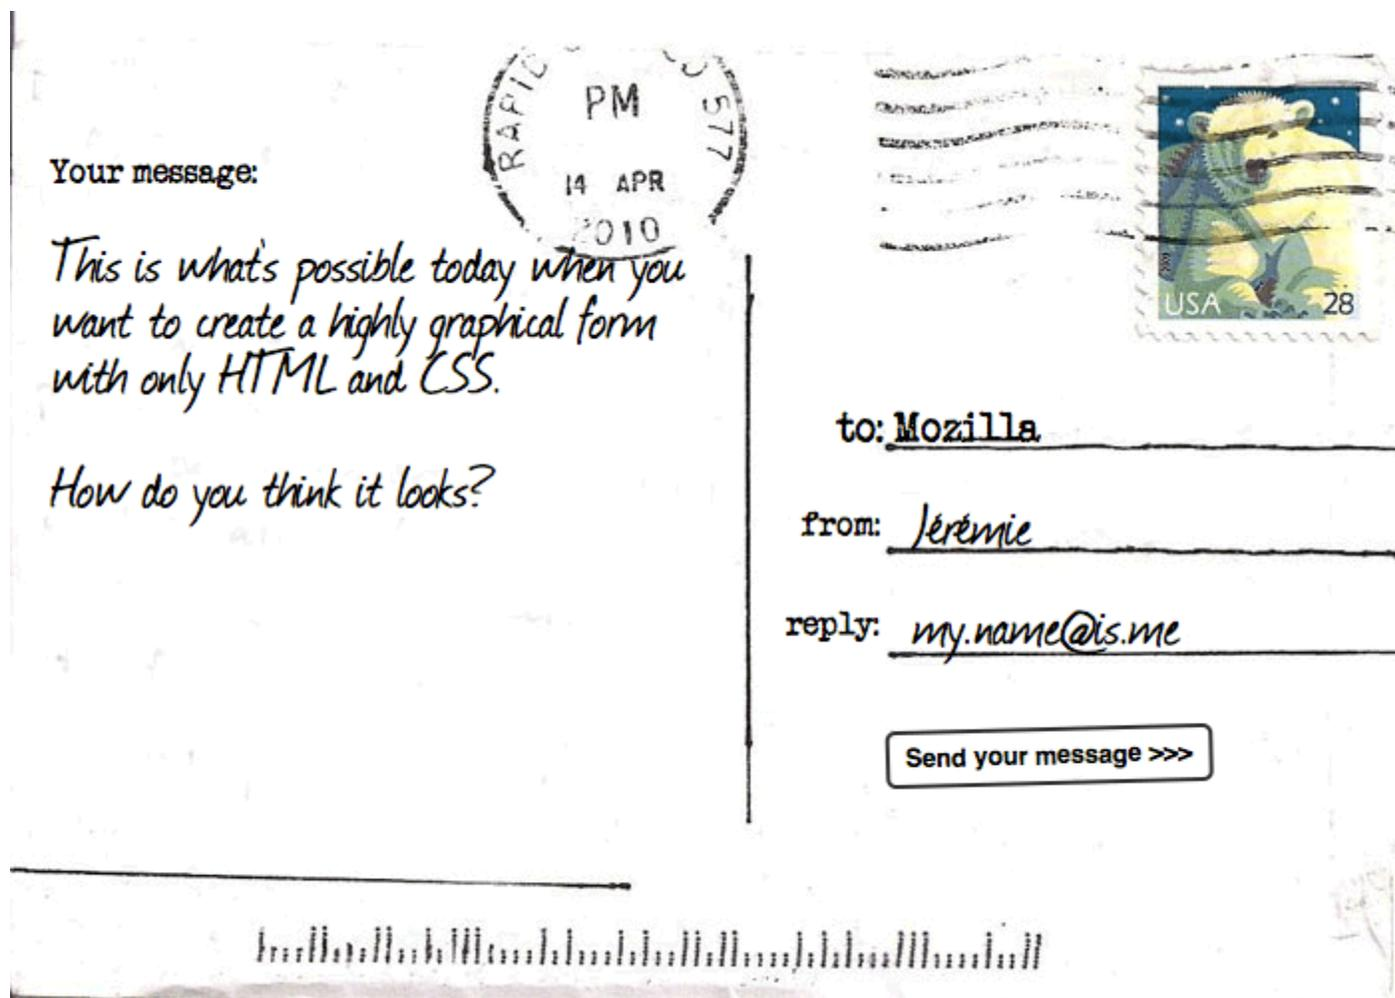 RAPID
577
PM
14 APR
2010
USA 28
Your message:
This is what's possible today when you
want to create a highly graphical form
with only HTML and CSS.
How do you think it looks?
to: Mozilla
from: Jérémie
reply: my.name@is.me
Send your message >>>